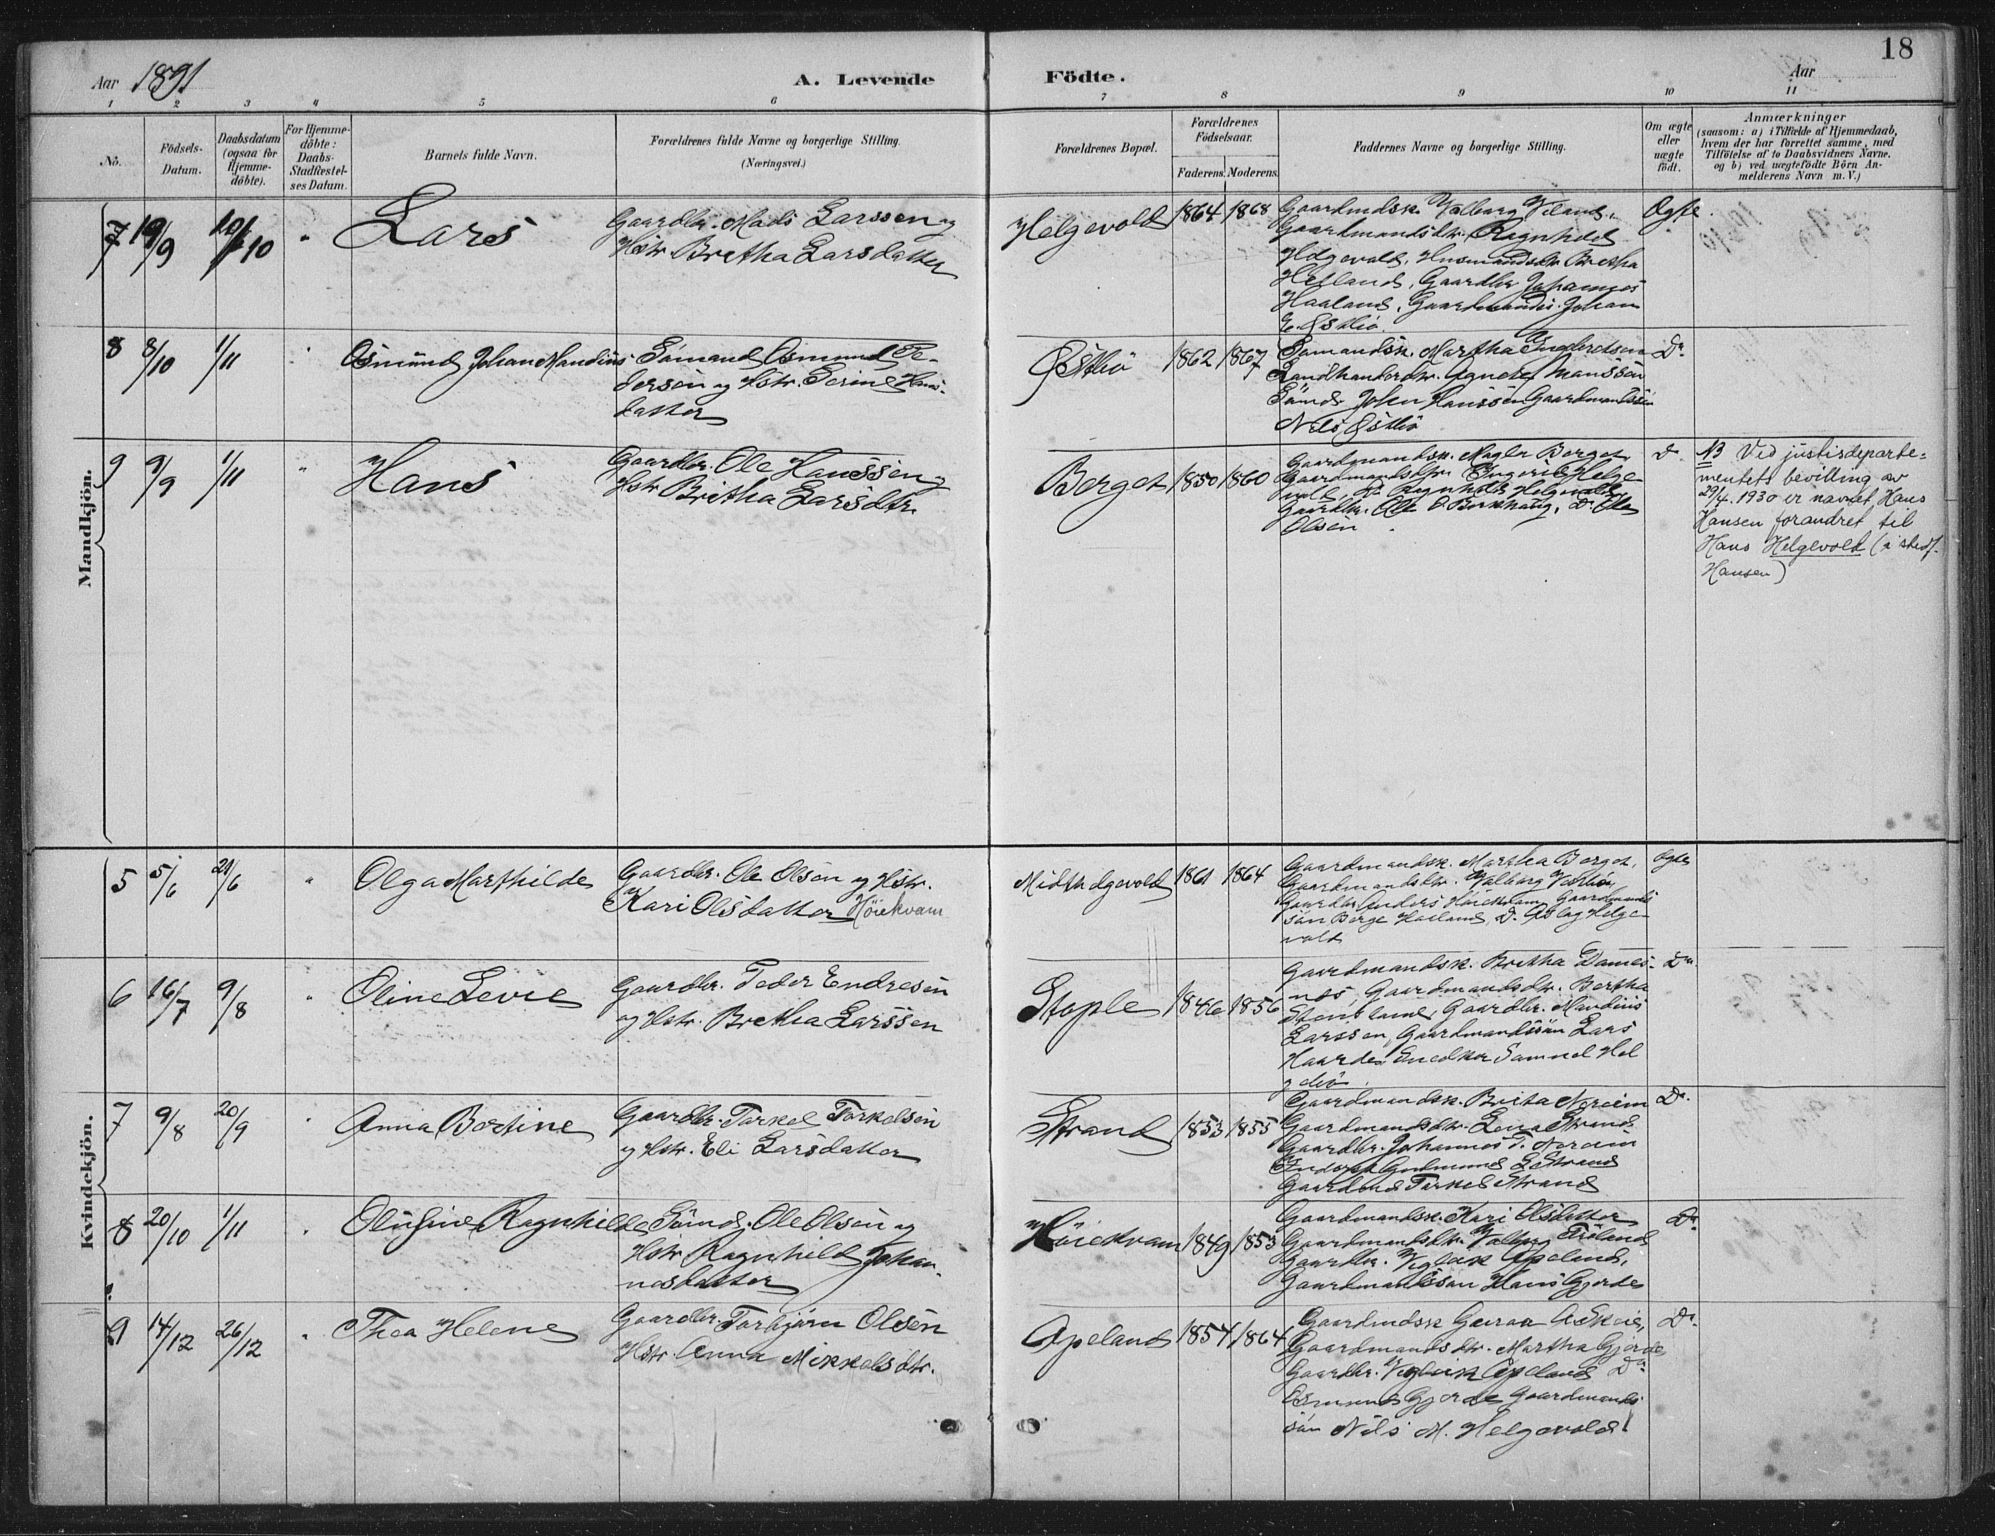 18
Aar 1891 A. Levende Födte. Aar
1 2 3 4 5 6 7 8 9 10 11
Nô. Födsels-Datum. Daabsdatum (ogsaa for Hjemmedöbte). For Hjemmedöbte: Daabs-Stadfæstelses Datum. Barnets fulde Navn. Forældrenes fulde Navne og borgerlige Stilling. (Næringsvei.) Forældrenes Bopæl. Forældrenes Födselsaar. Faderens. Moderens. Faddernes Navne og borgerlige Stilling. Om ægte eller uægte födt. Anmærkninger (saasom: a) i Tilfælde af Hjemmedaab, hvem der har forrettet samme, med Tilföielse af to Daabsvidners Navne, og b) ved uægtefödte Börn Anmelderens Navn m. V.)
Mandkjön.
7 19/9 10/10 " Lars
Gaardbr. Mads Larssen og
Hstr. Bretha Larsdatter
Helgevold 1864 1868
Gaardmdsk. Valborg
Gaardmandsdtr. Ragnhild
Helgevold, Husmandsdtr Bretha
Hetland, Gaardbr Johannes
Haaland, Gaardmands. Johan
E. Östhö
Ægte
8 8/10 1/11 " Osmund Johan Mandius
Sömand Osmund Pe-
dersen og Hstr. Serine Hans-
datter
Östhö 1862 1867
Sömandsk. Martha
Landhandlerdtr. Agnete Monssen
Sömd. John Hanssen Gaardmandssön
Nils Östhö
Do
9 9/9 1/11 " Hans
Gaardbr. Ole Hanssen og
Hstr Bretha Larsdtr.
Berget 1850 1860
Gaardmandsk. Berget
Gaardmandsdtr. Ingerid Helge-
vold, Do Ragnhild Helgevold
Gaardbr. Ole O Birkhaug, Do Ole
Olsen
Do
NB Ved justisdeparte-
mentets bevilling av
29/4. 1930 er navnet Hans
Hansen forandret til
Hans Helgevold (i stedf.
Hansen)
Kvindekjön.
5 5/6 21/6 " Olga Marthilde
Gaardbr. Ole Olsen og Hstr.
Kari Olsdatter Höiekvam
Midthelgevold 1861 1864
Gaardmandsk. Martha Berget,
Gaardmandsdtr. Valborg
Gaardbr. Anders Höiekvam, Gaardmands
sön Börge Haaland, Do Aslag Helge-
vold
Ægte
6 16/7 9/8 " Oline Sevie
Gaardbr. Peder Endresen
og Hstr. Bretha Larssen
Stople 1846 1856
Gaardmandsk. Bretha Dames-
nes, Gaardmandsdtr. Bertha
Gaardbr. Mandius
Larssen, Gaardmandssön Lars
Samuel Hel
Do
7 9/8 20/9 " Anna Bertine
Gaardbr. Torkel Torkelsen
og Hstr. Eli Larsdatter
Strand 1853 1855
Gaardmandsk. Brita Noreim
Gaardmandsdtr. Lena Strand
Gaardbr. Johannes T. Noreim
Gudmund L Strand
Gaardmd Torkel Strand
Do.
8 20/10 1/11 " Olufine Ragnhilde
Sömd. Ole Olsen og
Hstr. Ragnhild Johan-
nesdatter
Höiekvam 1849 1853
Gaardmandsk. Kari Olsdatter
Gaardmandsdtr. Valborg Fröland
Gaardbr. Vigleik Apeland,
Gaardmandssön Hans Gjerde
Do
9 14/12 26/12 " Thea Helene
Gaardbr. Torbjörn Olsen
Hstr. Anna Mikkelsdtr.
Apeland 1854 1864
Gaardmdsk
Gaardmandsdtr. Martha Gjerde
Gaardbr. Vigleik Apeland Do
Osmund Gjerde Gaardmands
sön Nils M. Helgevold
Do